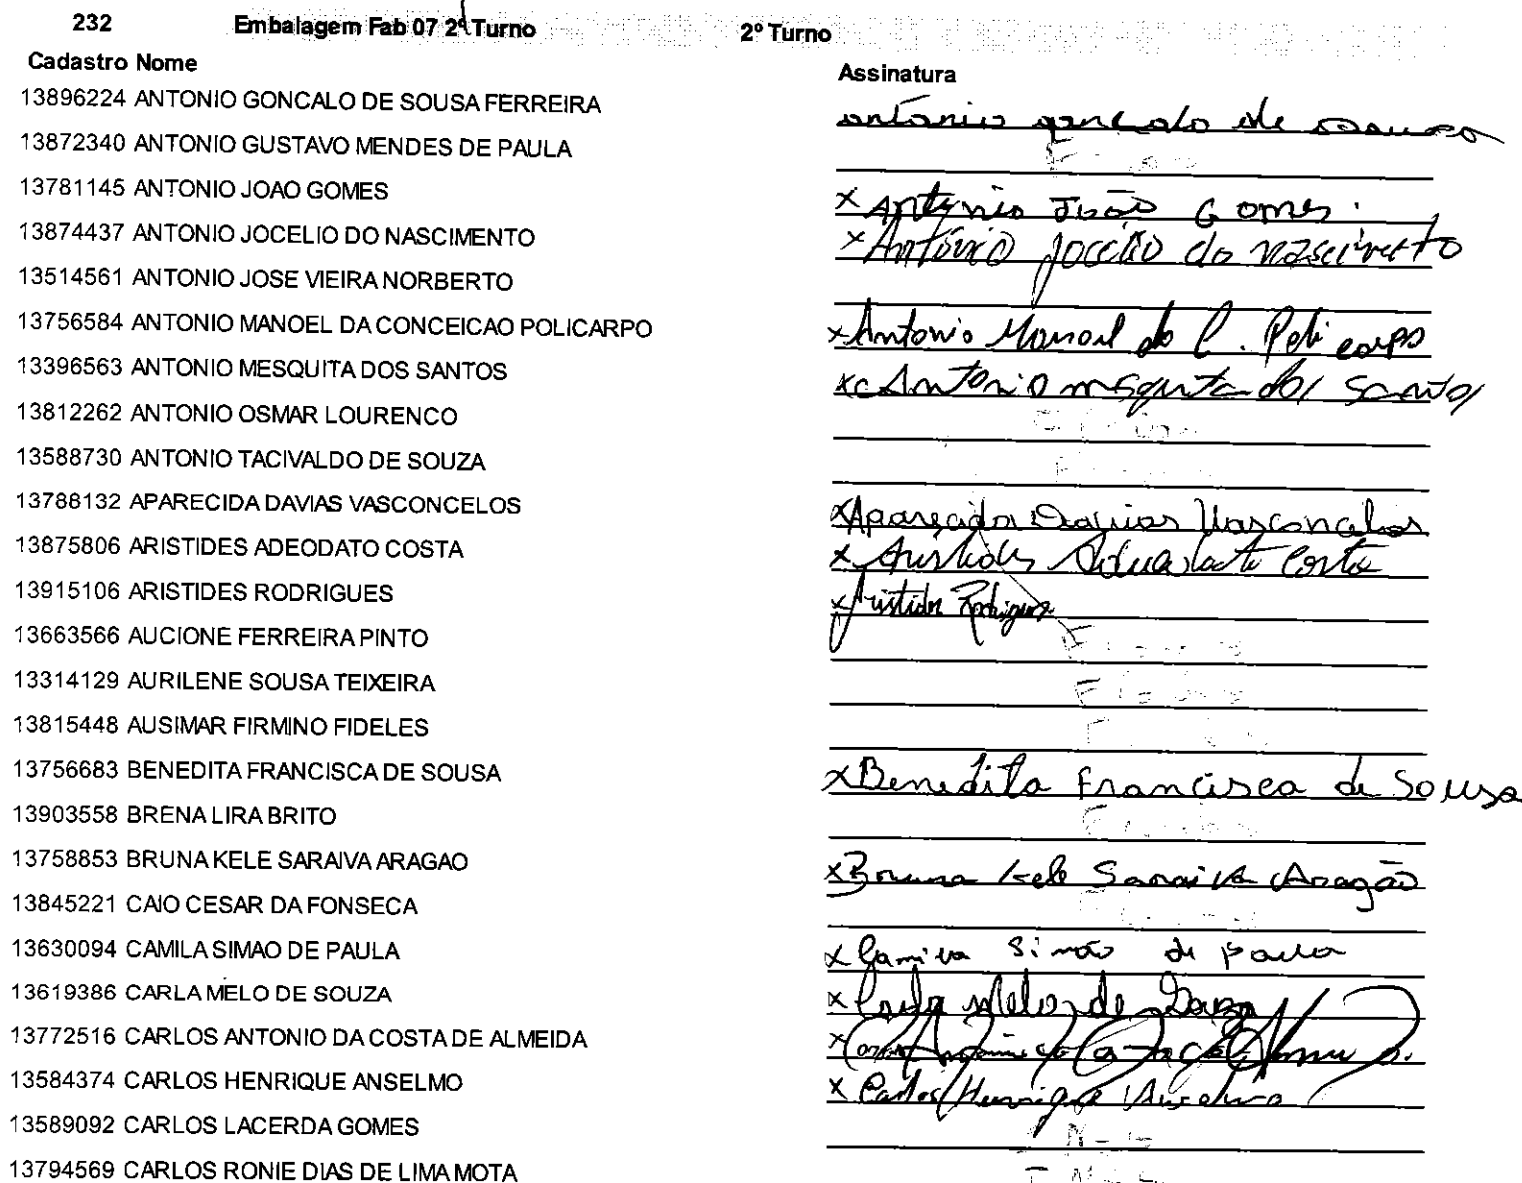 232 Embalagem Fab 07 2º Turno 2º Turno
Cadastro Nome Assinatura
13896224 ANTONIO GONCALO DE SOUSA FERREIRA antonio goncalo de
13872340 ANTONIO GUSTAVO MENDES DE PAULA
13781145 ANTONIO JOAO GOMES x Antonio João Gomes.
13874437 ANTONIO JOCELIO DO NASCIMENTO x Antônio do
13514561 ANTONIO JOSE VIEIRA NORBERTO
13756584 ANTONIO MANOEL DA CONCEICAO POLICARPO x Antonio Manoel da C. Policarpo
13396563 ANTONIO MESQUITA DOS SANTOS x Antonio dos Santos
13812262 ANTONIO OSMAR LOURENCO
13588730 ANTONIO TACIVALDO DE SOUZA
13788132 APARECIDA DAVIAS VASCONCELOS x Aparecida Davias Vasconcelos
13875806 ARISTIDES ADEODATO COSTA x Aristides Costa
13915106 ARISTIDES RODRIGUES x Aristides Rodrigues
13663566 AUCIONE FERREIRA PINTO
13314129 AURILENE SOUSA TEIXEIRA
13815448 AUSIMAR FIRMINO FIDELES
13756683 BENEDITA FRANCISCA DE SOUSA x Benedita Francisca de Sousa
13903558 BRENA LIRA BRITO
13758853 BRUNA KELE SARAIVA ARAGAO x Bruna Kele Saraiva Aragão
13845221 CAIO CESAR DA FONSECA
13630094 CAMILA SIMAO DE PAULA x Camila Simão de Paula
13619386 CARLA MELO DE SOUZA x Carla Melo de Souza
13772516 CARLOS ANTONIO DA COSTA DE ALMEIDA x
13584374 CARLOS HENRIQUE ANSELMO x Carlos Henrique Anselmo
13589092 CARLOS LACERDA GOMES
13794569 CARLOS RONIE DIAS DE LIMA MOTA